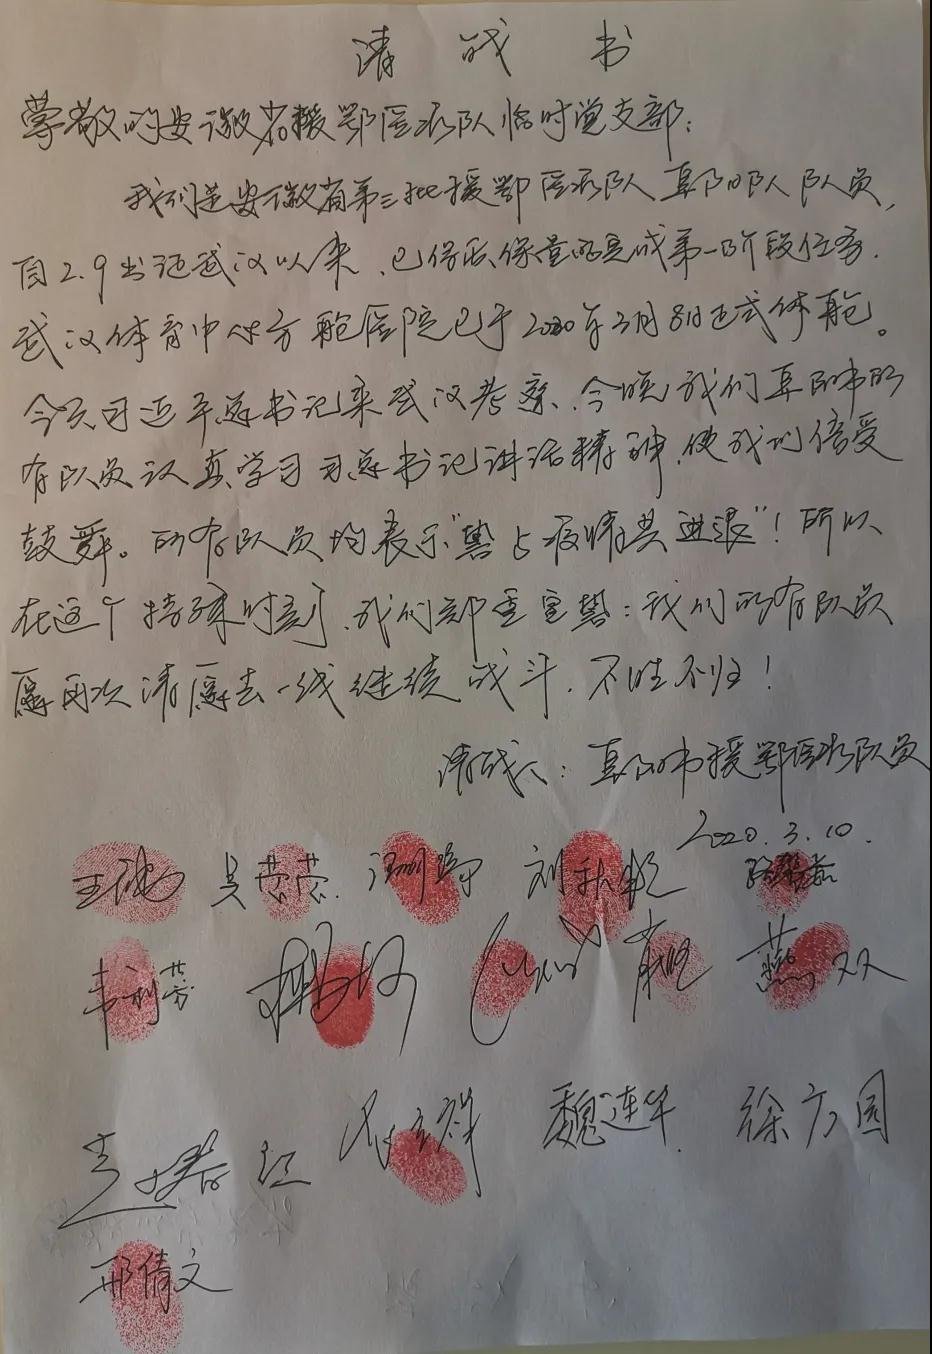 请战书
尊敬的安徽省援鄂医疗队临时党支部：
我们是安徽省第三批援鄂医疗队阜阳队队员，
自2.9出征武汉以来，已保质保量的完成第一阶段任务．
武汉体育中心方舱医院已于2020年3月8日正式休舱。
今天习近平总书记来武汉考察，今晚我们阜阳市所
有队员认真学习习总书记讲话精神，使我们倍受
鼓舞。所有队员均表示“誓与疫情共进退”！所以
在这个特殊时刻，我们郑重宣誓：我们所有队员
愿再次请愿去一线继续战斗．不胜不归！
请战人：阜阳市援鄂医疗队队员
2020.3.10.
王 吴蒂蒂． 刘秋艳
韦利芳 杨 燕双双
祥 魏连华 徐方园
邢倩文